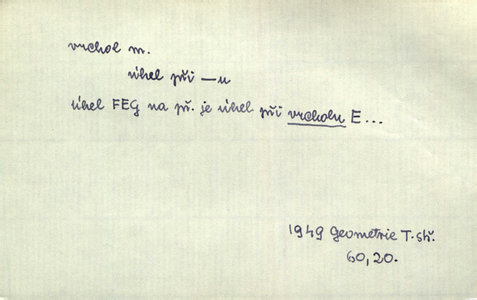 vrchol m.
úhel při —u
úhel FEG na př. je úhel při vrcholu E...
1949 Geometrie T.stř.
60,20.